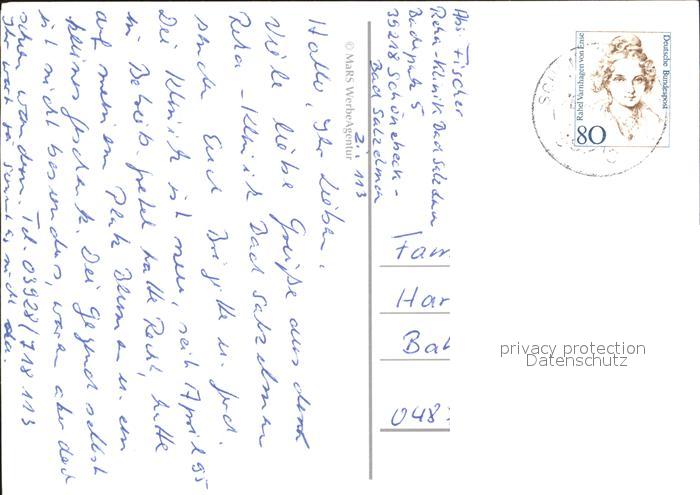 Hallo, Ihr Lieben,
Viele liebe Grüße aus dem
Reha-Klinik Bad Salzelmen
sende Euch Brigitte u. Gerd.
Die Klinik ist neu, seit April 95
in Betrieb. Gerd hatte Recht, hatte
auf meinem Platz Blumen u. ein
kleines Geschenk. Die Gegend selbst
ist nicht besonders, waren aber doch
schon wandern. Tel. 03928/718 113
Ihr wart ja sonst nicht da.
© MaRS WerbeAgentur
Zi. 113
Abs. Fischer
Reha-Klinik Bad Salzelmen
Badepark 5
39218 Schönebeck-
Bad Salzelmen
Deutsche Bundespost
Rahel Varnhagen von Ense
80
Fam
Har
Bah
048
privacy protection
Datenschutz